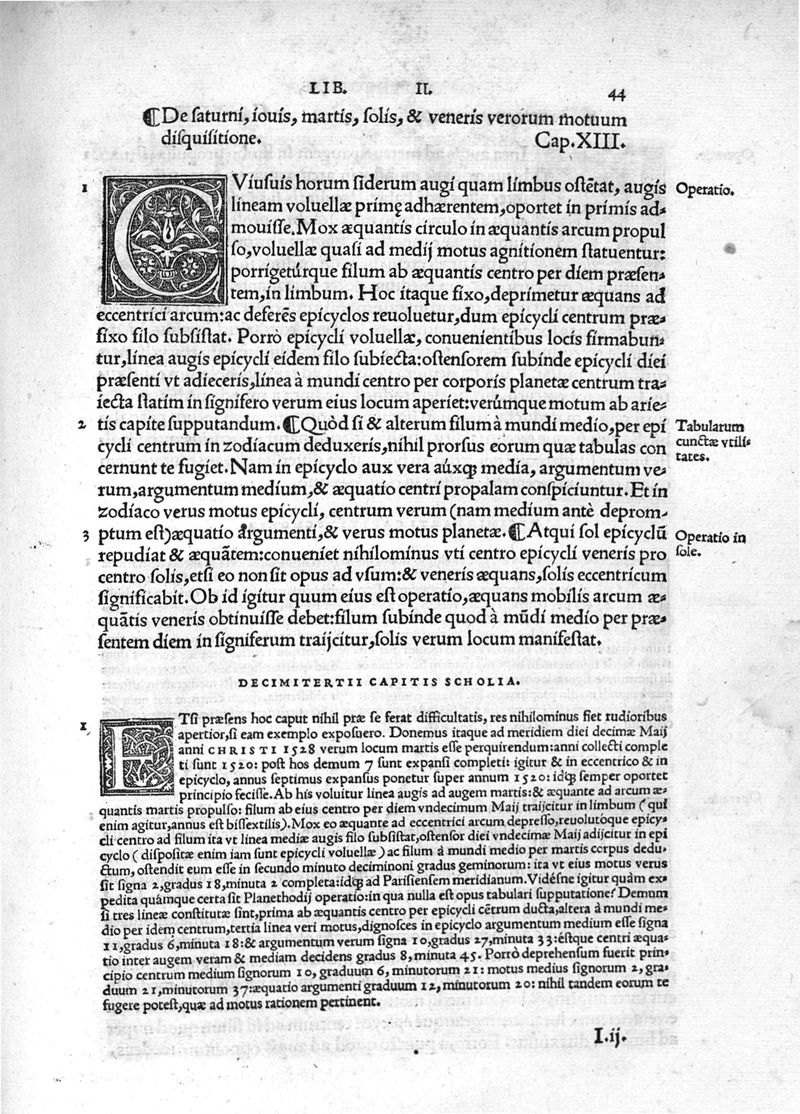 LIB. II. 44
¶De saturni, iouis, martis, solis, & veneris verorum motuum
disquisitione. Cap.XIII.
1 CViusuis horum siderum augi quam limbus ostẽtat, augis Operatio.
lineam voluellæ primę adhærentem,oportet in primis ad-
mouisse.Mox æquantis circulo in æquantis arcum propul
so,voluellæ quasi ad medij motus agnitionem statuentur:
porrigetúrque filum ab æquantis centro per diem præsen-
tem,in limbum. Hoc itaque fixo,deprimetur æquans ad
eccentrici arcum:ac deferẽs epicyclos reuoluetur,dum epicycli centrum præ-
fixo filo subsistat. Porrò epicycli voluellæ, conuenientibus locis firmabun-
tur,linea augis epicycli eidem filo subiecta:ostensorem subinde epicycli diei
præsenti vt adieceris,linea à mundi centro per corporis planetæ centrum tra-
iecta statim in signifero verum eius locum aperiet:verúmque motum ab arie-
2 tis capite supputandum. ¶Quòd si & alterum filum à mundi medio,per epi Tabularum
cycli centrum in zodiacum deduxeris,nihil prorsus eorum quæ tabulas con cunctæ vtili-
cernunt te fugiet. Nam in epicyclo aux vera aúxqꝫ media, argumentum ve- tates.
rum,argumentum medium,& æquatio centri propalam conspiciuntur. Et in
zodiaco verus motus epicycli, centrum verum (nam medium antè deprom-
3 ptum est)æquatio argumenti,& verus motus planetæ. ¶Atqui sol epicyclũ Operatio in
repudiat & æquãtem:conueniet nihilominus vti centro epicycli veneris pro sole.
centro solis,etsi eo non sit opus ad vsum:& veneris æquans,solis eccentricum
significabit. Ob id igitur quum eius est operatio,æquans mobilis arcum æ-
quãtis veneris obtinuisse debet:filum subinde quod à mũdi medio per præ-
sentem diem in signiferum traijcitur,solis verum locum manifestat.
DECIMITERTII CAPITIS SCHOLIA.
1 ETsi præsens hoc caput nihil præ se ferat difficultatis, res nihilominus fiet rudioribus
apertior,si eam exemplo exposuero. Donemus itaque ad meridiem diei decimæ Maij
anni CHRISTI 1528 verum locum martis esse perquirendum:anni collecti comple
ti sunt 1520: post hos demum 7 sunt expansi completi: igitur & in eccentrico & in
epicyclo, annus septimus expansus ponetur super annum 1520: idqꝫ semper oportet
principio fecisse. Ab his voluitur linea augis ad augem martis:& æquante ad arcum æ-
quantis martis propulso: filum ab eius centro per diem vndecimum Maij traijcitur in limbum ( qui
enim agitur,annus est bissextilis). Mox eo æquante ad eccentrici arcum depresso,reuolutoque epicy-
cli centro ad filum ita vt linea mediæ augis filo subsistat,ostensor diei vndecimæ Maij adijcitur in epi
cyclo ( dispositæ enim iam sunt epicycli voluellæ ) ac filum à mundi medio per martis corpus dedu-
ctum, ostendit eum esse in secundo minuto decimi noni gradus geminorum: ita vt eius motus verus
sit signa 2,gradus 18,minuta 2 completa:idqꝫ ad Parisiensem meridianum. Vidésne igitur quàm ex-
pedita quámque certa sit Planethodij operatio:in qua nulla est opus tabulari supputatione? Demum
si tres lineæ constitutæ sint,prima ab æquantis centro per epicycli cẽtrum ducta,altera à mundi me-
dio per idem centrum,tertia linea veri motus,dignosces in epicyclo argumentum medium esse signa
11,gradus 6,minuta 18:& argumentum verum signa 10,gradus 27,minuta 33:éstque centri æqua-
tio inter augem veram & mediam decidens gradus 8, minuta 45. Porrò deprehensum fuerit prin-
cipio centrum medium signorum 10, graduum 6, minutorum 21: motus medius signorum 2, gra-
duum 21,minutorum 37:æquatio argumenti graduum 12,minutorum 20: nihil tandem eorum te
fugere potest,quæ ad motus rationem pertinent.
I.ij.